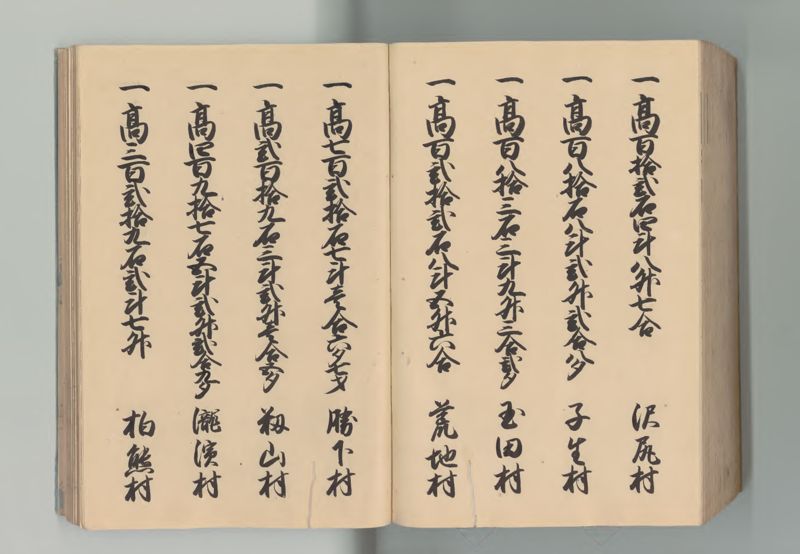 一高百拾弐石四斗八升七合 沢尻村
一高百八拾石八斗弐升弐合八夕 子生村
一高百八拾三石二斗九升三合弐夕 玉田村
一高百弐拾弐石八斗五升六合 荒地村
一高七百弐拾石七斗壱合六夕七才 勝下村
一高弐百拾九石三斗弐升壱合五夕 籾山村
一高四百九拾七石五斗弐升弐合九夕 瀧濱村
一高三百弐拾九石弐斗七升 柏熊村